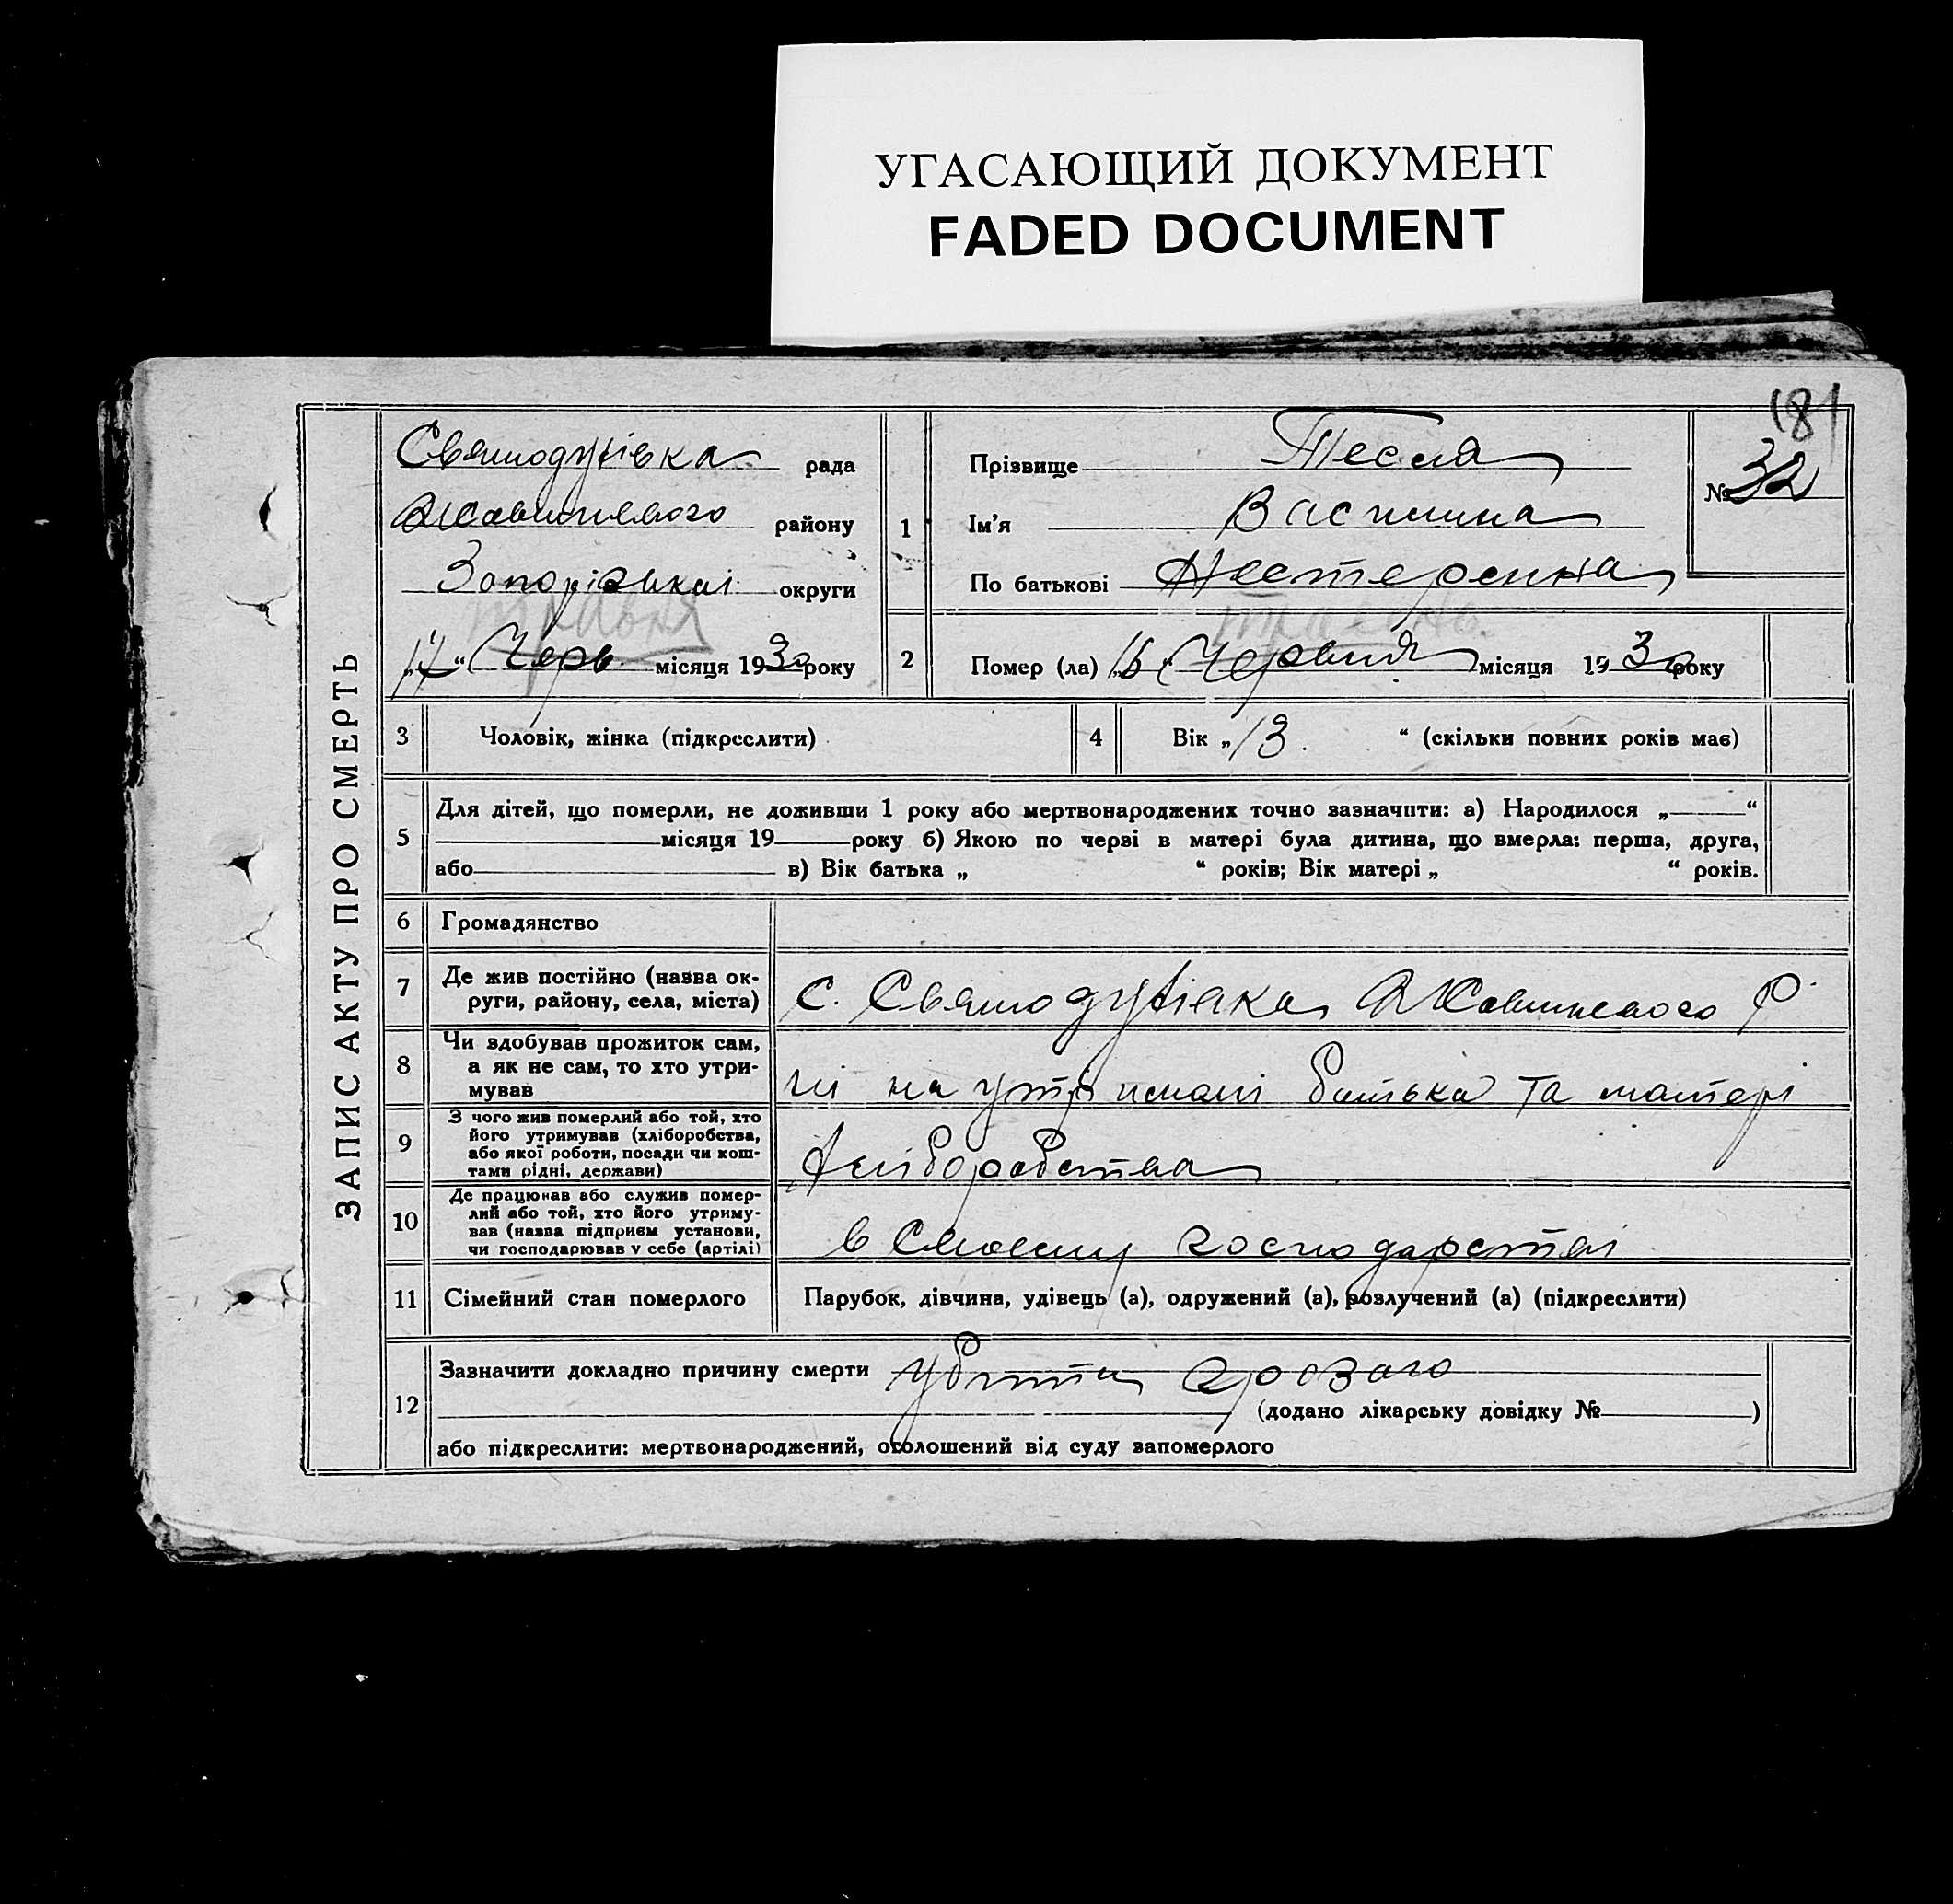 УГАСАЮЩИЙ ДОКУМЕНТ
FADED DOCUMENT
181
ЗАПИС АКТУ ПРО СМЕРТЬ
Святодухівка рада
району
Запорізької округи
травня
"17" Черв. місяця 1930 року
1
Прізвище Тесля
Ім'я Василина
По батькові Нестерєнна
№ 32
2
травень.
Помер (ла) "16" Червня місяця 1930 року
3 Чоловік, жінка (підкреслити)
4 Вік „13. “ (скільки повних років має)
5
Для дітей, що померли, не доживши 1 року або мертвонароджених точно зазначити: а) Народилося „ “
місяця 19 року б) Якою по черзі в матері була дитина, що вмерла: перша, друга,
або в) Вік батька „ “ років; Вік матері „ “ років.
6 Громадянство
7 Де жив постійно (назва ок-
руги, району, села, міста)
с. Святодухівка р.
8 Чи здобував прожиток сам,
а як не сам, то хто утри-
мував
ні на утримані батька та матері
9 З чого жив померлий або той, хто
його утримував (хліборобства,
або якої роботи, посади чи кош-
тами рідні, держави)
Хліборобства
10 Де працював або служив помер-
лий або той, хто його утриму-
вав (назва підприєм установи,
чи господарював у себе (артілі)
в Своєму господарстві
11 Сімейний стан померлого
Парубок, дівчина, удівець (а), одружений (а), розлучений (а) (підкреслити)
12
Зазначити докладно причину смерти убита грозою
(додано лікарську довідку № )
або підкреслити: мертвонароджений, оголошений від суду запомерлого